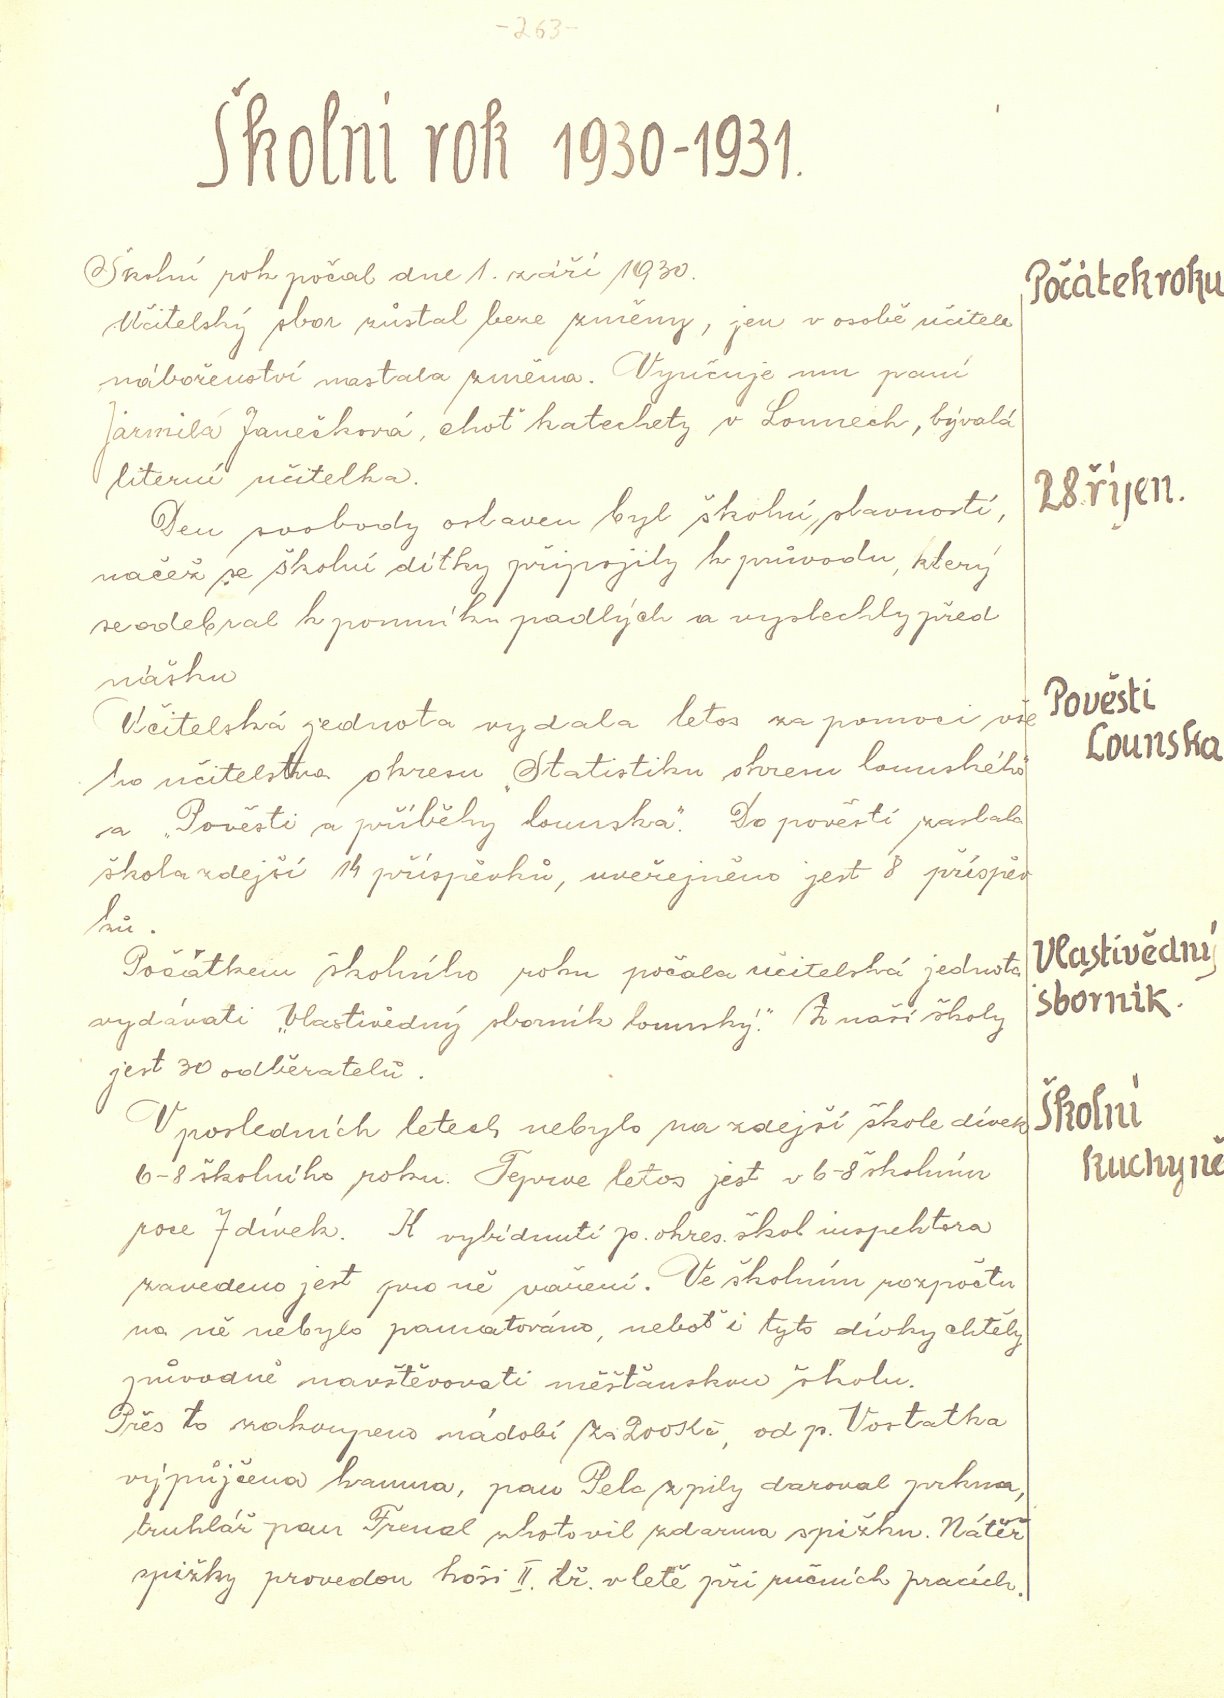 -263-
Školní rok 1930-1931.
Školní rok počal dne 1. září 1930.
Počátek roku
Učitelský sbor zůstal beze změny, jen v osobě učitele
náboženství nastala změna. Vyučuje mu paní
Jarmila Janečková, choť katechety v Lounech, bývalá
literní učitelka.
28. říjen.
Den svobody oslaven byl školní slavností,
načež se školní dítky připojily k průvodu, který
se odebral k pomníku padlých a vyslechly před
nášku
Pověsti
Lounska
Učitelská jednota vydala letos za pomoci vše
ho učitelstva okresu „Statistiku okresu lounského“
a „Pověsti a příběhy lounska“. Do pověstí zaslala
škola zdejší 14 příspěvků, uveřejněno jest 8 příspěv
ků.
Vlastivědný
sborník.
Počátkem školního roku počala učitelská jednota
vydávati „Vlastivědný sborník lounský“. Z naší školy
jest 30 odběratelů.
Školní
kuchyně
V posledních letech nebylo na zdejší škole dívek
6-8 školního roku. Teprve letos jest v 6-8 školním
roce 7 dívek. K vybídnutí p. okres. škol inspektora
zavedeno jest pro ně vaření. Ve školním rozpočtu
na ně nebylo pamatováno, neboť i tyto dívky chtěly
původně navštěvovati měšťanskou školu.
Přes to zakoupeno nádobí za 200 Kč, od p. Vostatka
vypůjčena kamna, pan Pelc z pily daroval prkna,
truhlář pan Frencl zhotovil zdarma spižku. Nátěr
spižky provedou hoši II. tř. v létě při ručních pracích.